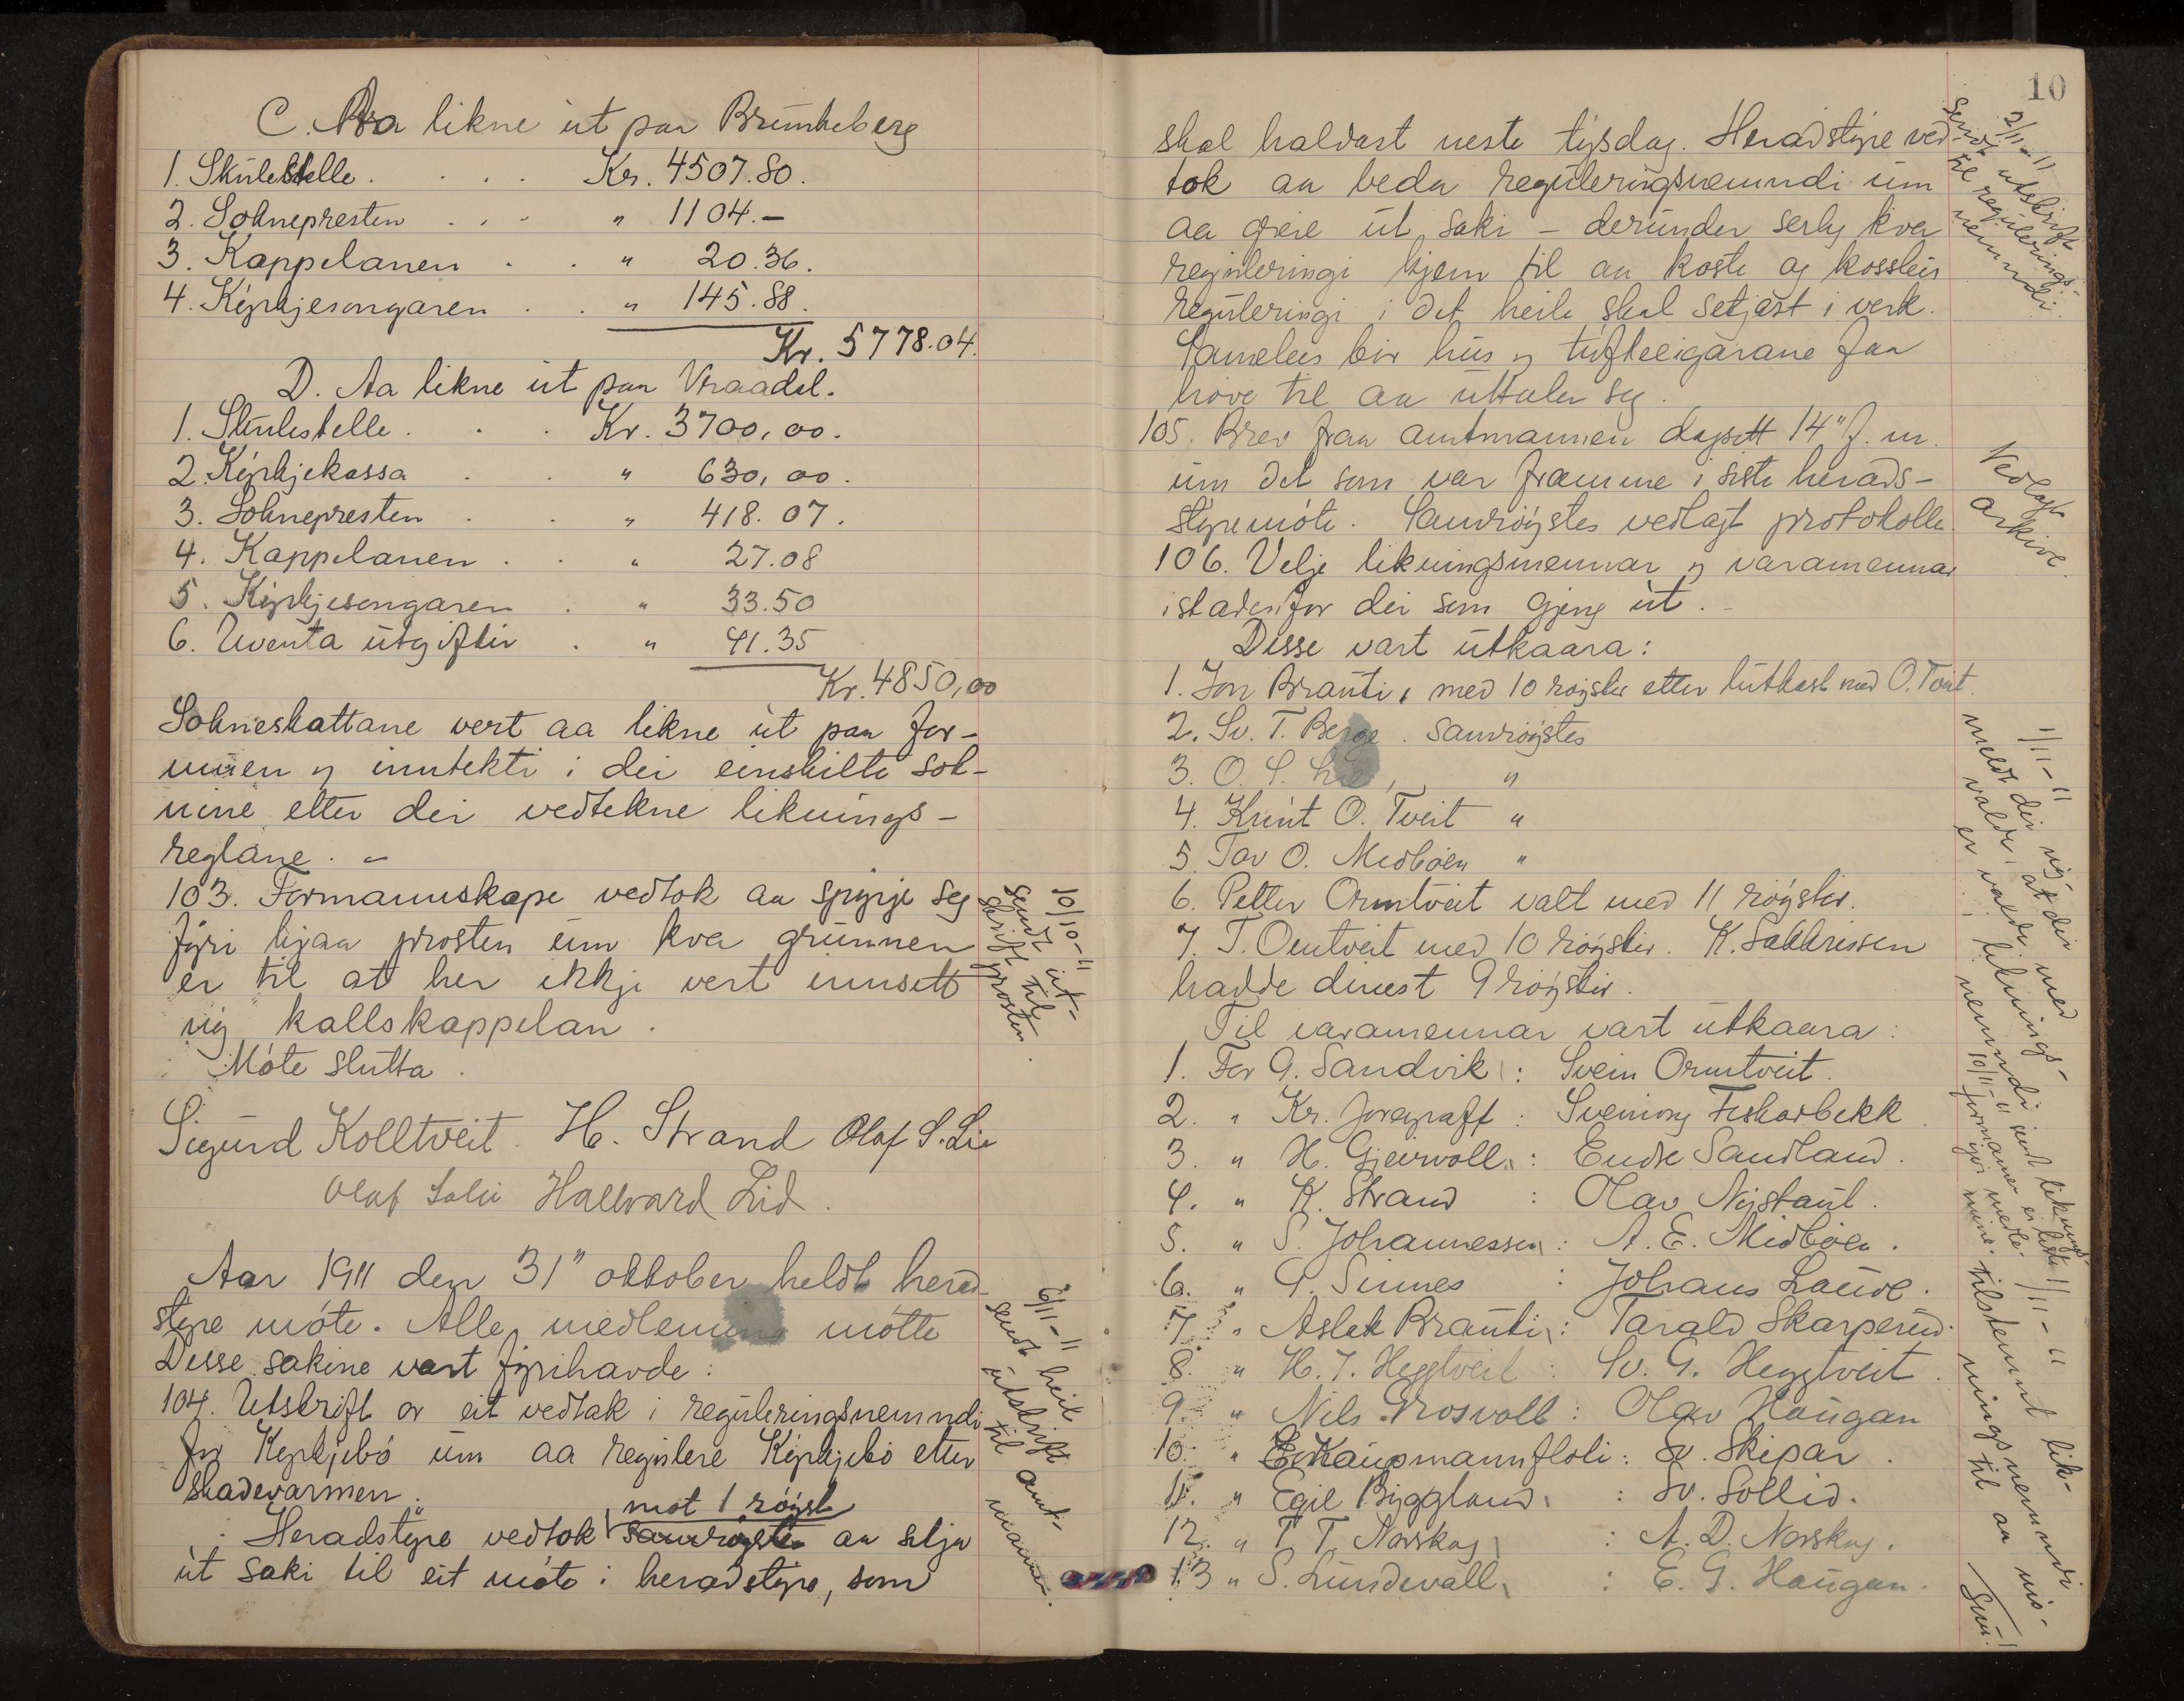 C. Aa likne ut paa Brunkeberg
1. Skulestelle . . . . Kr. 4507.80.
2. Soknepresten . . . " 1104.–
3. Kappelanen . . " 20.36.
4. Kyrkjesongaren . . " 145.88.
Kr. 5778.04.
D. Aa likne ut paa Vraadal.
1. Skulestelle . . . Kr. 3700,00.
2. Kyrkjekassa . . " 630,00.
3. Soknepresten . . " 418.07.
4. Kappelanen . . " 27.08
5. Kyrkjesongaren . " 33.50
6. Uventa utgifter . " 41.35
Kr. 4850,00
Sokneskattane vert aa likne ut paa for-
muen og inntekti i dei einskilte sok-
nine etter dei vedtekne liknings-
reglane. –
103. Formannskape vedtok aa spyrje seg
fyri hjaa prosten um kva grunnen
er til at her ikkje vert innsett
ny kallskappelan.
Møte slutta.
10/10-11
sendt ut-
skrift til
prosten.
Sigurd Kolltveit. H. Strand Olaf S. Lie
Olaf Lalii Hallvard Lid.
Aar 1911 den 31" oktober heldt herad-
styre møte. Alle medlemine møtte
Disse sakine vart fyrihavde:
104. Utskrift av eit vedtak i reguleringsnemndi
for Kyrkjebø um aa regulere Kyrkjebø etter
skadevarmen.
mot 1 røyst
Heradstyre vedtok samrøystes aa setja
ut saki til eit møte i heradstyre, som
6/11-11
sendt heile
utskrift
til amt-
mannen.
10
skal haldast neste tysdag. Heradstyre ved-
tok aa beda reguleringsnemndi um
aa greie ut saki – derunder serleg kva
reguleringi kjem til aa koste og kossleis
reguleringi i det heile skal setjast i verk.
Sameleis bør hus og tufteeigarane faa
høve til aa uttale seg.
2/11-11
Sendt utskrift
til regulerings-
nemndi.
105. Brev fraa amtmannen dagsett 14" f. m.
um det som var framme i siste herads-
styremøte. Samrøystes vedlagt protokolle.
Vedlagt
arkive.
106. Velje likningsmennar og varamennar
istadenfor dei som gjeng ut. –
Disse vart utkaara:
1. Jon Brauti, med 10 røyster etter lutkast med O. Tveit.
2. Sv. T. Berge . samrøystes
3. O. S. Lie, "
4. Knut O. Tveit "
5. Tov O. Midbøen "
6. Petter Ormtveit valt med 11 røyster.
7. T. Omtveit med 10 røyster. K. Sakkrissen
hadde dinest 9 røyster.
Til varamennar vart utkaara:
1. For G. Sandvik : Svein Ormtveit.
2. " Kr. : Sveinung Fiskarbekk.
3. " H. Gjervoll : Endre Sandland.
4. " K. Strand : Olav Nystaul.
5. " S. Johannessen : A. E. Midbøen.
6. " G. Sinnes : Johans Laupe.
7. " Aslak Brauti : Tarald Skarperud.
8. " H. J. Heggtveit : Sv. G. Heggtveit.
9. " Nils Grosvoll : Olav Haugan
10. " Kaupmannfloti : Sv. Skipar.
11. " Egil Byggland : Sv. Sollid.
12. " T. T. Norskog : A. D. Norskog.
13 " S. Lundevall : E. G. Haugan.
1/11-11
meldt dei ny-
valde, at dei med
er valde i liknings-
nemndi
1/11-11
tilstemnt lik-
ningsnemndi
til aa mø-